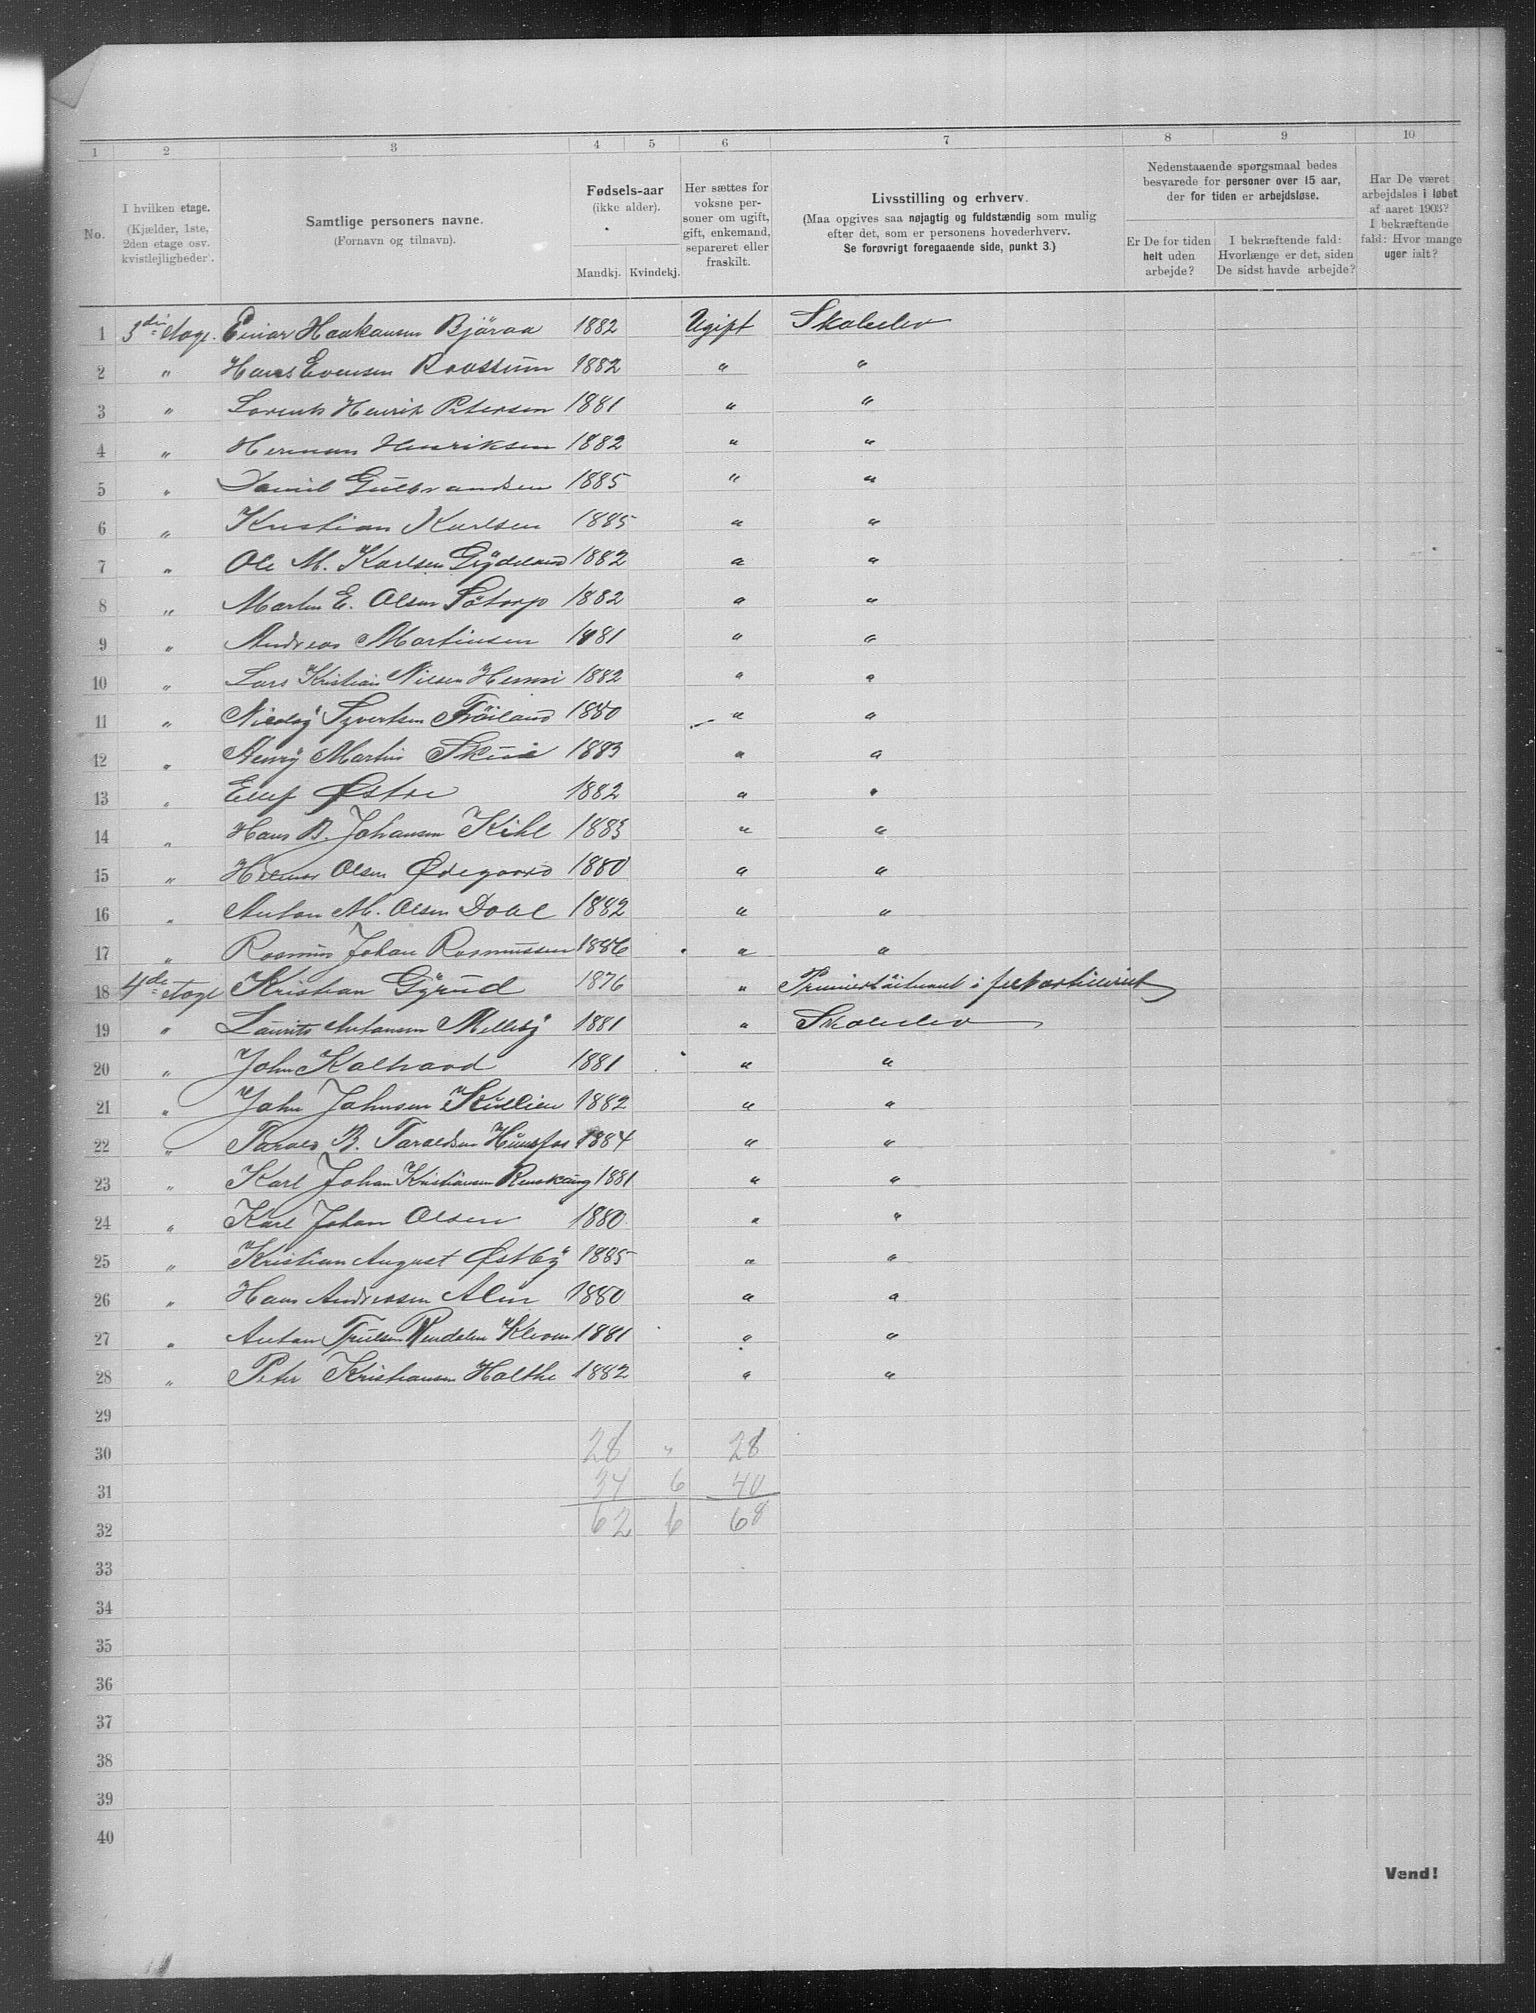 1 2 3 4 5 6 7 8 9 10
No.
I hvilken etage.
(Kjælder, 1ste,
2den etage osv.
kvistlejligheder).
Samtlige personers navne.
(Fornavn og tilnavn).
Fødsels-aar
(ikke alder).
Mandkj. Kvindekj.
Her sættes for
voksne per-
soner om ugift,
gift, enkemand,
separeret eller
fraskilt.
Livsstilling og erhverv.
(Maa opgives saa nøjagtig og fuldstændig som mulig
efter det, som er personens hovederhverv.
Se forøvrigt foregaaende side, punkt 3.)
Nedenstaaende spørgsmaal bedes
besvarede for personer over 15 aar,
der for tiden er arbejdsløse.
Er De for tiden
helt uden
arbejde?
I bekræftende fald:
Hvorlænge er det, siden
De sidst havde arbejde?
Har De været
arbejdsløs i løbet
af aaret 1903?
I bekræftende
fald: Hvor mange
uger ialt?
1 3die etage. Einar Haakansen Bjøraa 1882 Ugift Skoleelev
2 " Hans Evensen Raastum 1882 " "
3 " Lorents Henrik Petersen 1881 " "
4 " Herman Henriksen 1882 " "
5 " Daniel Gulbrandsen 1885 " "
6 " Kristian Karlsen 1885 " "
7 " Ole M. Karlsen Gydeland 1882 " "
8 " Martin E. Olsen Søtorp 1882 " "
9 " Andreas Martinsen 1881 " "
10 " Lars Kristian Nilsen 1882 " "
11 " Nicolay Syvertsen Frøiland 1880 " "
12 " Henry Martin 1883 " "
13 " Ellef Østre 1882 " "
14 " Hans B. Johansen Kihl 1883 " "
15 " Hilmar Olsen Ødegaard 1880 " "
16 " Anton M. Olsen Dahl 1882 " "
17 " Rasmus Johan Rasmussen 1886 " "
18 4de etage Kristian Gyrud 1876 " Premierløitnant i
19 " Laurits Antonsen Melleby 1881 " Skoleelev
20 " John Kolstad 1881 " "
21 " John Johnsen 1882 " "
22 " Tarald B. Taraldsen Hunsfos 1884 " "
23 " Karl Johan Kristiansen 1881 " "
24 " Karl Johan Olsen 1880 " "
25 " Kristian August Østby 1885 " "
26 " Hans Andersen Alm 1880 " "
27 " Anton Trulsen Rendalen Kleven 1881 " "
28 " Peter Kristiansen Holthe 1882 " "
29
30 28 " 28
31 34 6 40
32 62 6 68
33
34
35
36
37
38
39
40
Vend!